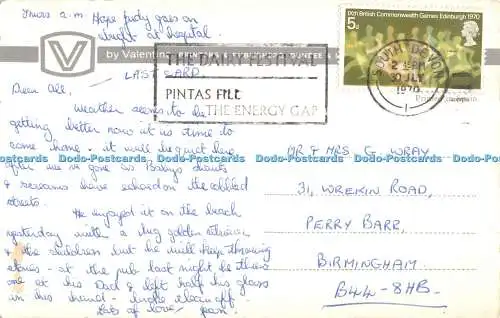 Thurs a.m. Hope Judy goes on
alright at hospital.
by Valentine
LAST CARD
Dear All,
Weather seems to be
getting better now it is time to
come home. it will be quiet here
after we've gone as Baby's shouts
& screams have echoed on the
streets.
He enjoyed it on the beach
yesterday with a big golden retriever
& the children but he will keep throwing
stones - at the pub last night he threw
one at his Dad & left half his glass
in his hand - broke clean off -
Lots of love, Joan.
THE DAIRY FESTIVAL
PINTAS FILL
THE ENERGY GAP
SOUTH DEVON
2 PM
30 JLY
1970
IXth British Commonwealth Games Edinburgh 1970
5d
MR & MRS G. WRAY,
31, WREKIN ROAD,
PERRY BARR,
BIRMINGHAM
B44-8HB.
Dodo-Postcards Dodo-Postcards Dodo-Postcards Dodo-Postcards Dodo-Postcards Dodo-Postcards